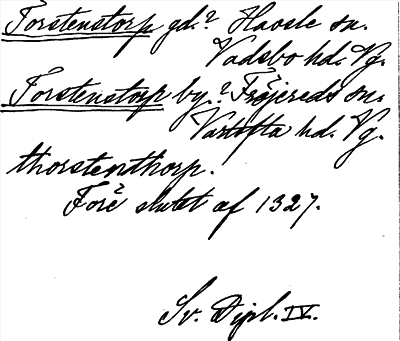 Torstenstorp gd.? Havsle sn.
Vadsbo hd. Vg.
Torstenstorp by? Fröjereds sn.
Vartofta hd. Vg.
thorstenthorp.
Före slutet af 1327.
Sv. Dipl. IV.